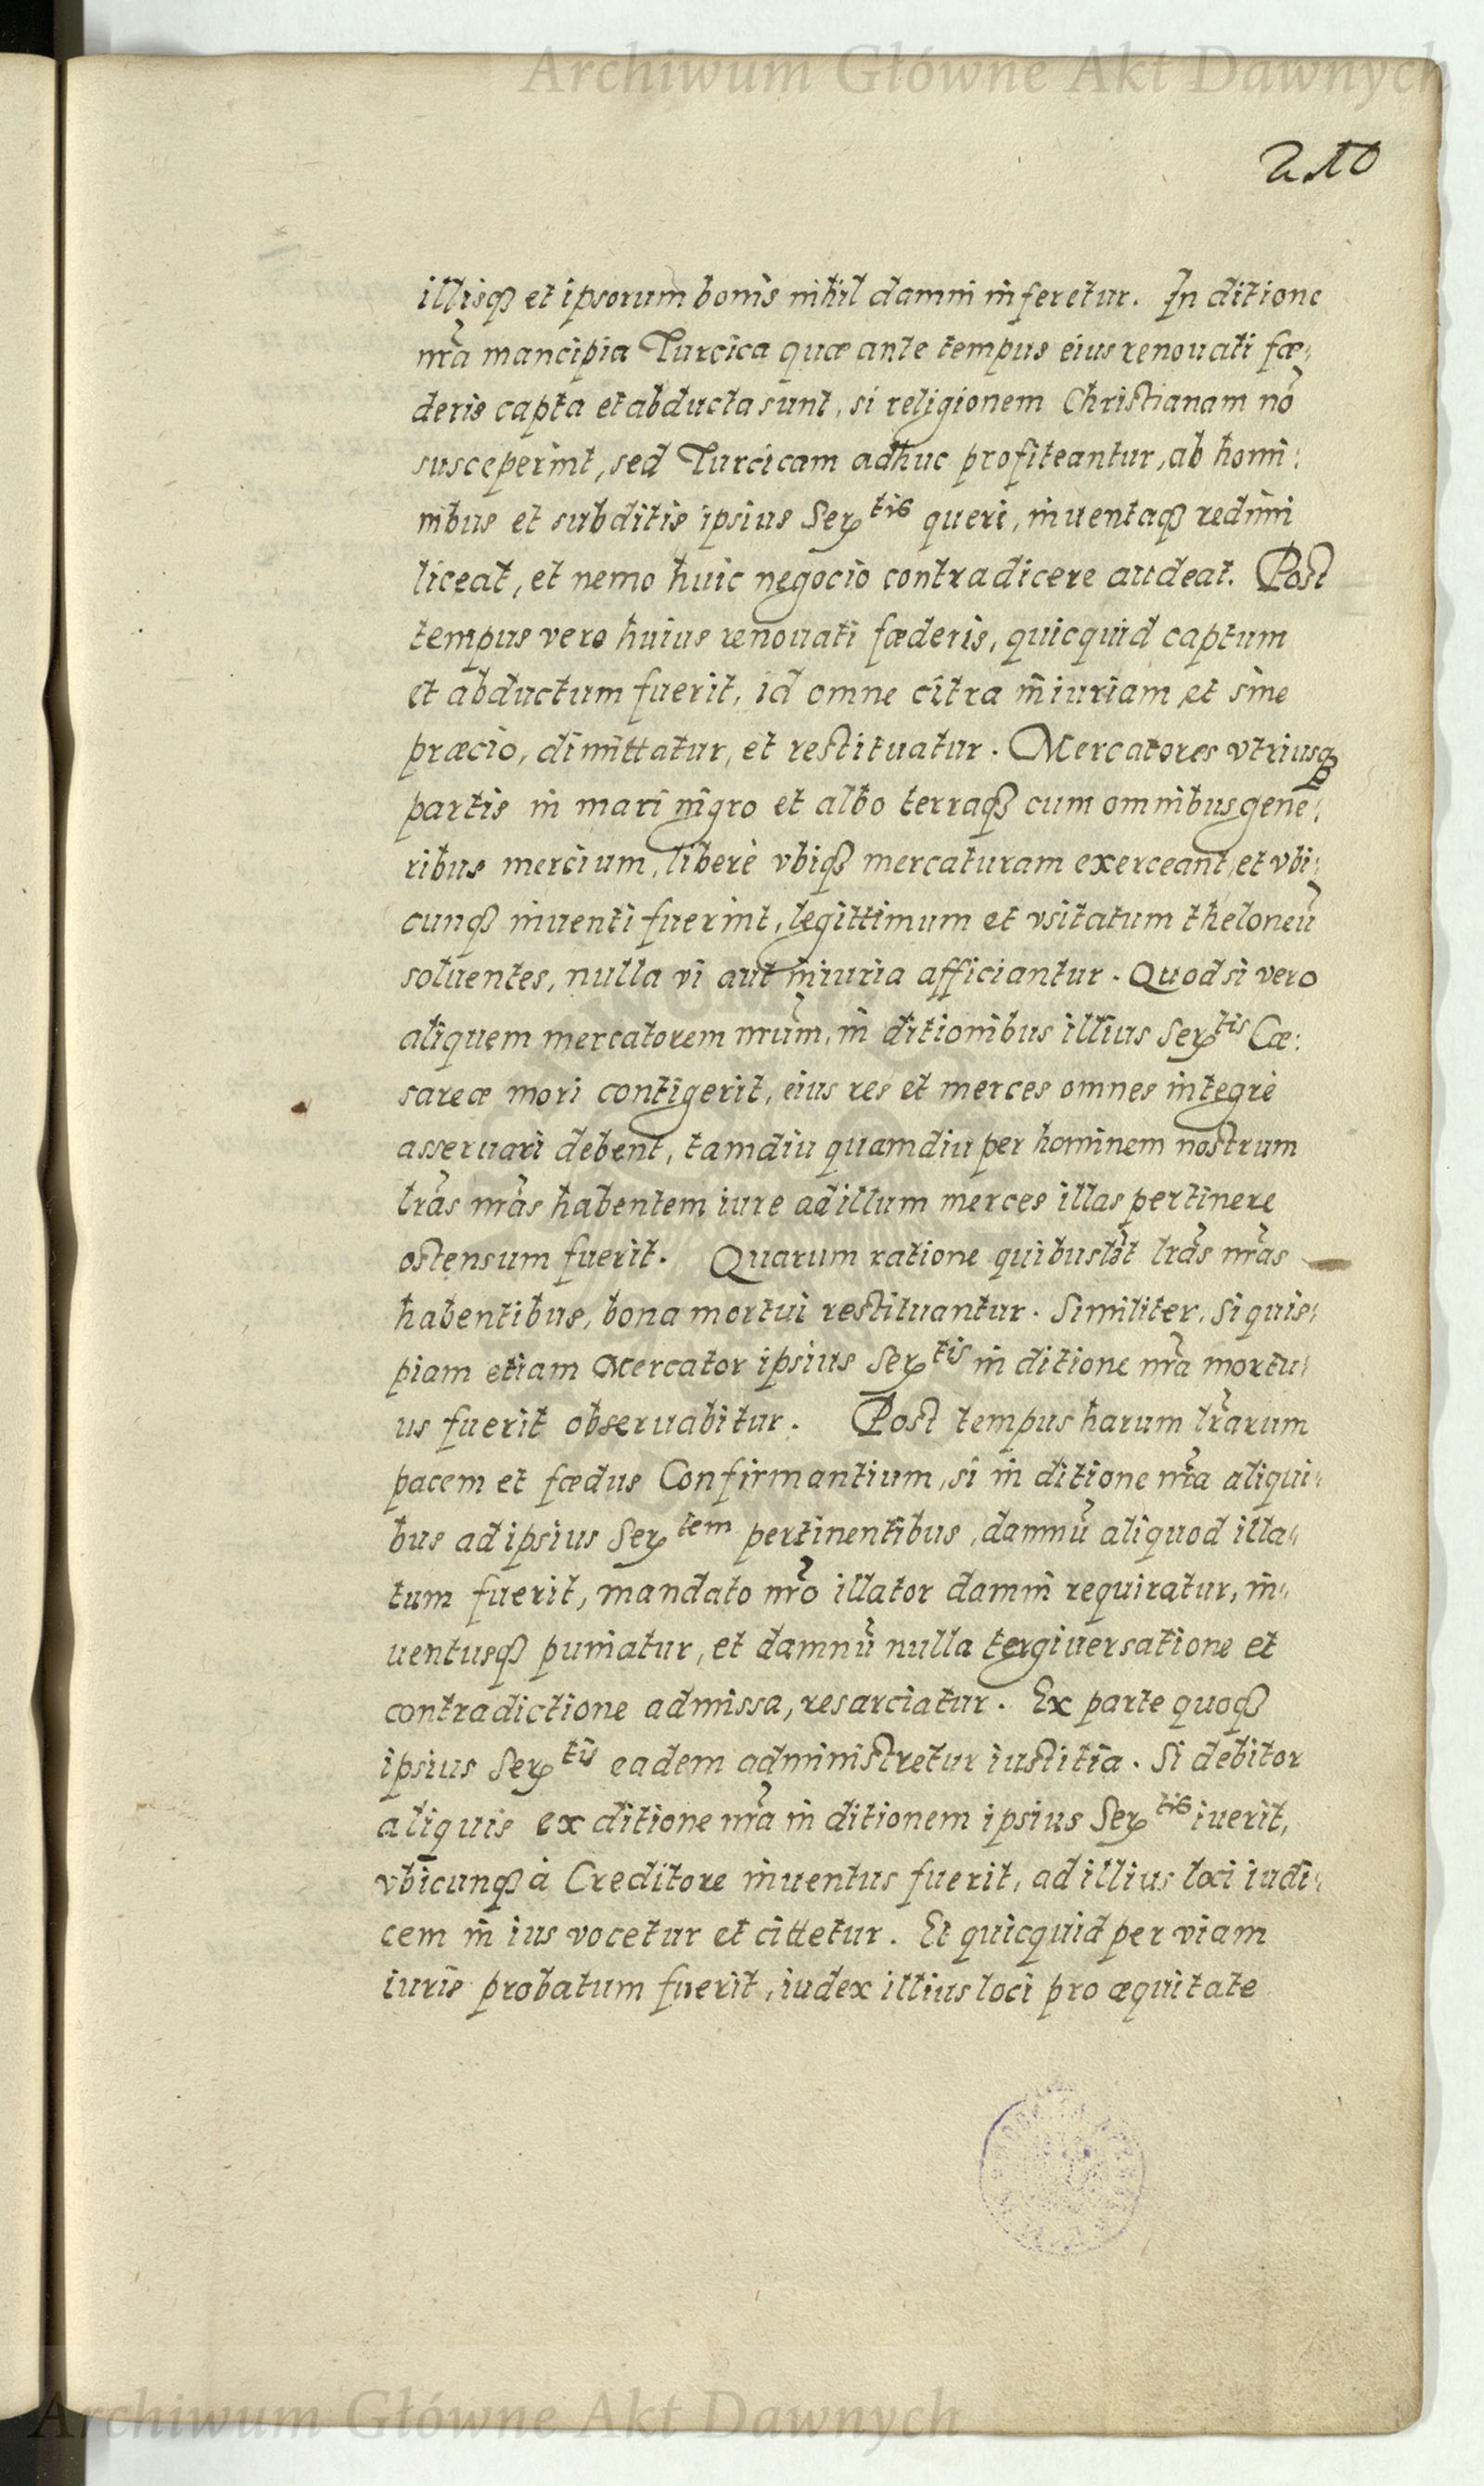 Archiwum Główne Akt Dawnych
210
illisqꝫ et ipsorum bonis nihil damni inferetur. In ditione
nr̃a mancipia Turcica quæ ante tempus eius renouati fæ:
deris capta et abducta sunt, si religionem Christianam nõ
susceperint, sed Turcicam adhuc profiteantur, ab homi:
nibus et subditis ipsius Serᵗⁱˢ queri, inuentaqꝫ redimi
liceat, et nemo huic negocio contradicere audeat. Post
tempus vero huius renouati fæderis, quicquid captum
et abductum fuerit, id omne citra iniuriam et sine
præcio, dimittatur, et restituatur. Mercatores vtriusqꝫ
partis in mari nigro et albo terraqꝫ cum omnibus gene:
ribus mercium, liberè vbiqꝫ mercaturam exerceant, et vbi:
cunqꝫ inuenti fuerint, legittimum et vsitatum theloneũ
soluentes, nulla vi aut iniuria afficiantur. Quod si vero
aliquem mercatorem nr̃um, in ditionibus illius Serᵗⁱˢ Cæ:
sareæ mori contigerit, eius res et merces omnes integrè
asseruari debent, tamdiu quamdiu per hominem nostrum
lr̃as nr̃as habentem iure ad illum merces illas pertinere
ostensum fuerit. Quarum ratione quibuslꝫt lr̃as nr̃as
habentibus, bona mortui restituantur. Similiter, si quis:
piam etiam Mercator ipsius Serᵗⁱˢ in ditione nr̃a mortu:
us fuerit obseruabitur. Post tempus harum lr̃arum
pacem et fœdus Confirmantium, si in ditione nr̃a aliqui:
bus ad ipsius Serᵗᵉᵐ pertinentibus, damnũ aliquod illa:
tum fuerit, mandato nr̃o illator damni requiratur, in:
uentusqꝫ puniatur, et damnũ nulla tergiuersatione et
contradictione admissa, resarciatur. Ex parte quoqꝫ
ipsius Serᵗⁱˢ eadem administretur iustitia. Si debitor
aliquis ex ditione nr̃a in ditionem ipsius Serᵗⁱˢ iuerit,
vbicunqꝫ à Creditore inuentus fuerit, ad illius loci iudi:
cem in ius vocetur et cittetur. Et quicquid per viam
iuris probatum fuerit, iudex illius loci pro æquitate
Archiwum Główne Akt Dawnych